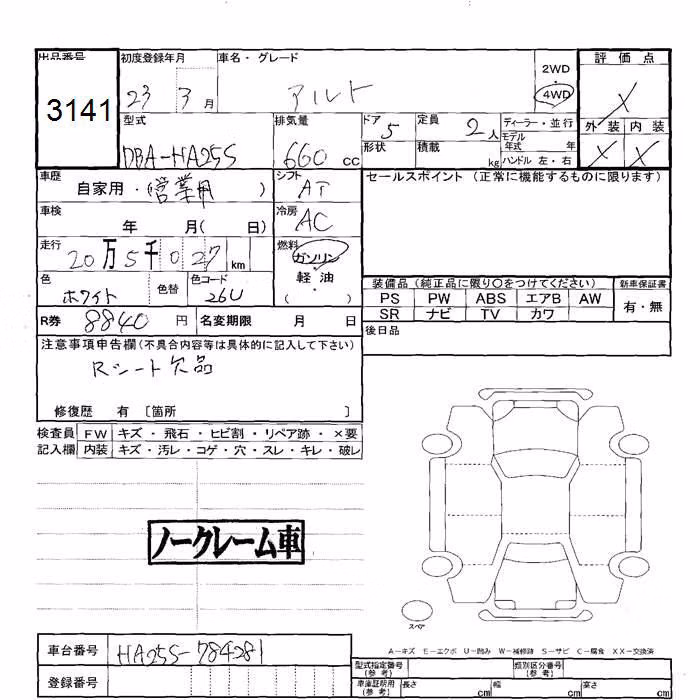 出品番号
3141
初度登録年月
23 3月
車名・グレード
アルト
2WD
4WD
評価点
X
外装 内装
X X
型式
DBA-HA25S
排気量
660 cc
ドア 5
形状
定員 2人
積載 kg
ディーラー・並行
モデル
年式 年
ハンドル 左・右
車歴
自家用・(営業用)
シフト
AT
セールスポイント (正常に機能するものに限ります)
車検
年 月( 日)
冷房
AC
走行
20万5千027 km
燃料
ガソリン
軽油
( )
色
ホワイト
色替
色コード
26U
装備品 (純正品に限り○をつけてください)
新車保証書
PS PW ABS エアB AW
SR ナビ TV カワ
有・無
R券 8840 円
名変期限 月 日
後日品
注意事項申告欄(不具合内容等は具体的に記入して下さい)
Rシート欠品
修復歴 有 〔箇所 〕
検査員 FW キズ・飛石・ヒビ割・リペア跡・×要
記入欄 内装 キズ・汚レ・コゲ・穴・スレ・キレ・破レ
ノークレーム車
スペア
A―キズ E―エクボ U―凹み W―補修跡 S―サビ C―腐食 XX―交換済
車台番号 HA25S-784281
登録番号
型式指定番号
(参考)
類別区分番号
(参考)
車庫証明用
(参考)
長さ cm
幅 cm
高さ cm